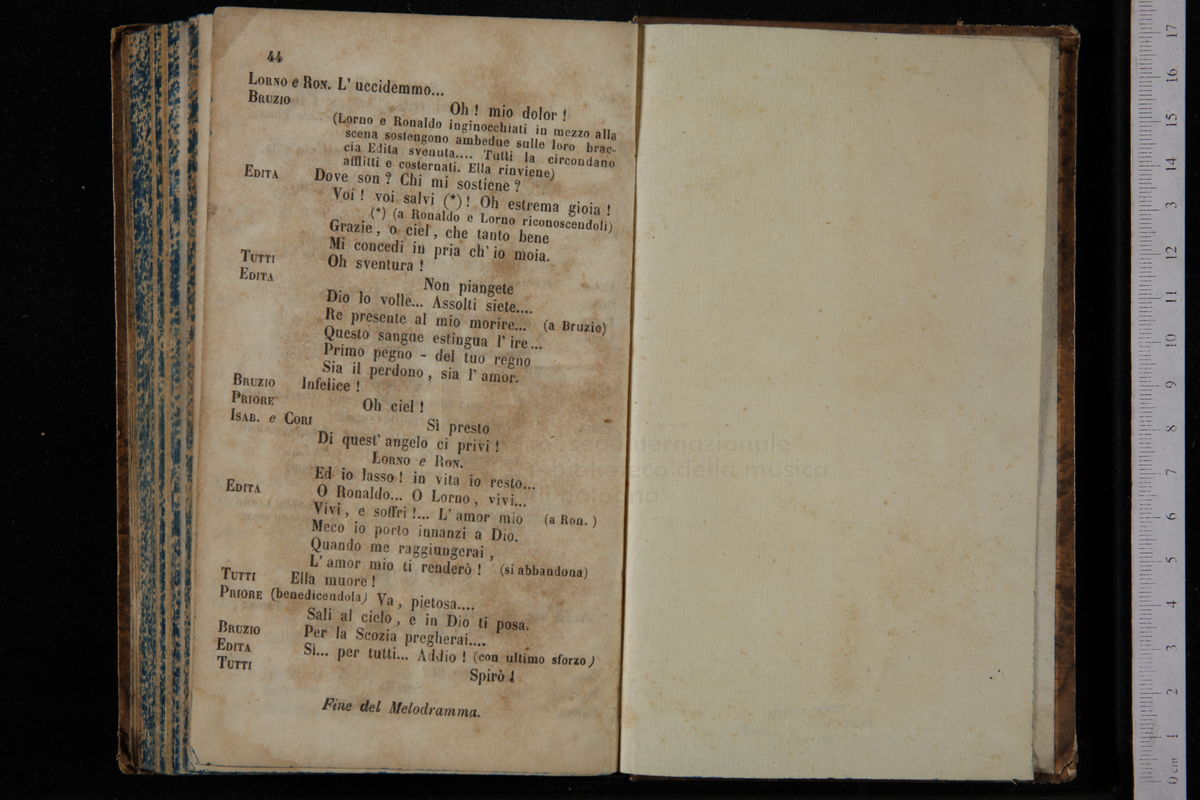 44
LORNO e RON. L' uccidemmo...
BRUZIO Oh ! mio dolor !
(Lorno e Ronaldo inginocchiati in mezzo alla
scena sostengono ambedue sulle loro brac-
cia Edita svenuta.... Tutti la circondano
afflitti e costernati. Ella rinviene)
EDITA Dove son ? Chi mi sostiene ?
Voi ! voi salvi (*) ! Oh estrema gioia !
(*) (a Ronaldo e Lorno riconoscendoli)
Grazie, o ciel, che tanto bene
Mi concedi in pria ch' io moia.
TUTTI Oh sventura !
EDITA Non piangete
Dio lo volle... Assolti siete....
Re presente al mio morire... (a Bruzio)
Questo sangue estingua l' ire...
Primo pegno - del tuo regno
Sia il perdono, sia l' amor.
BRUZIO Infelice !
PRIORE Oh ciel !
ISAB. e CORI Sì presto
Di quest' angelo ci privi !
LORNO e RON.
Ed io lasso ! in vita io resto...
EDITA O Ronaldo... O Lorno, vivi...
Vivi, e soffri !... L' amor mio (a Ron. )
Meco io porto innanzi a Dio.
Quando me raggiungerai,
L' amor mio ti renderò ! (si abbandona)
TUTTI Ella muore !
PRIORE (benedicendola) Va, pietosa....
Sali al cielo, e in Dio ti posa.
BRUZIO Per la Scozia pregherai....
EDITA Sì... per tutti... Addio ! (con ultimo sforzo)
TUTTI Spirò !
Fine del Melodramma.
museo internazionale
e biblioteca della musica
di bologna
17
16
15
14
13
12
11
10
9
8
7
6
5
4
3
2
1
0 cm